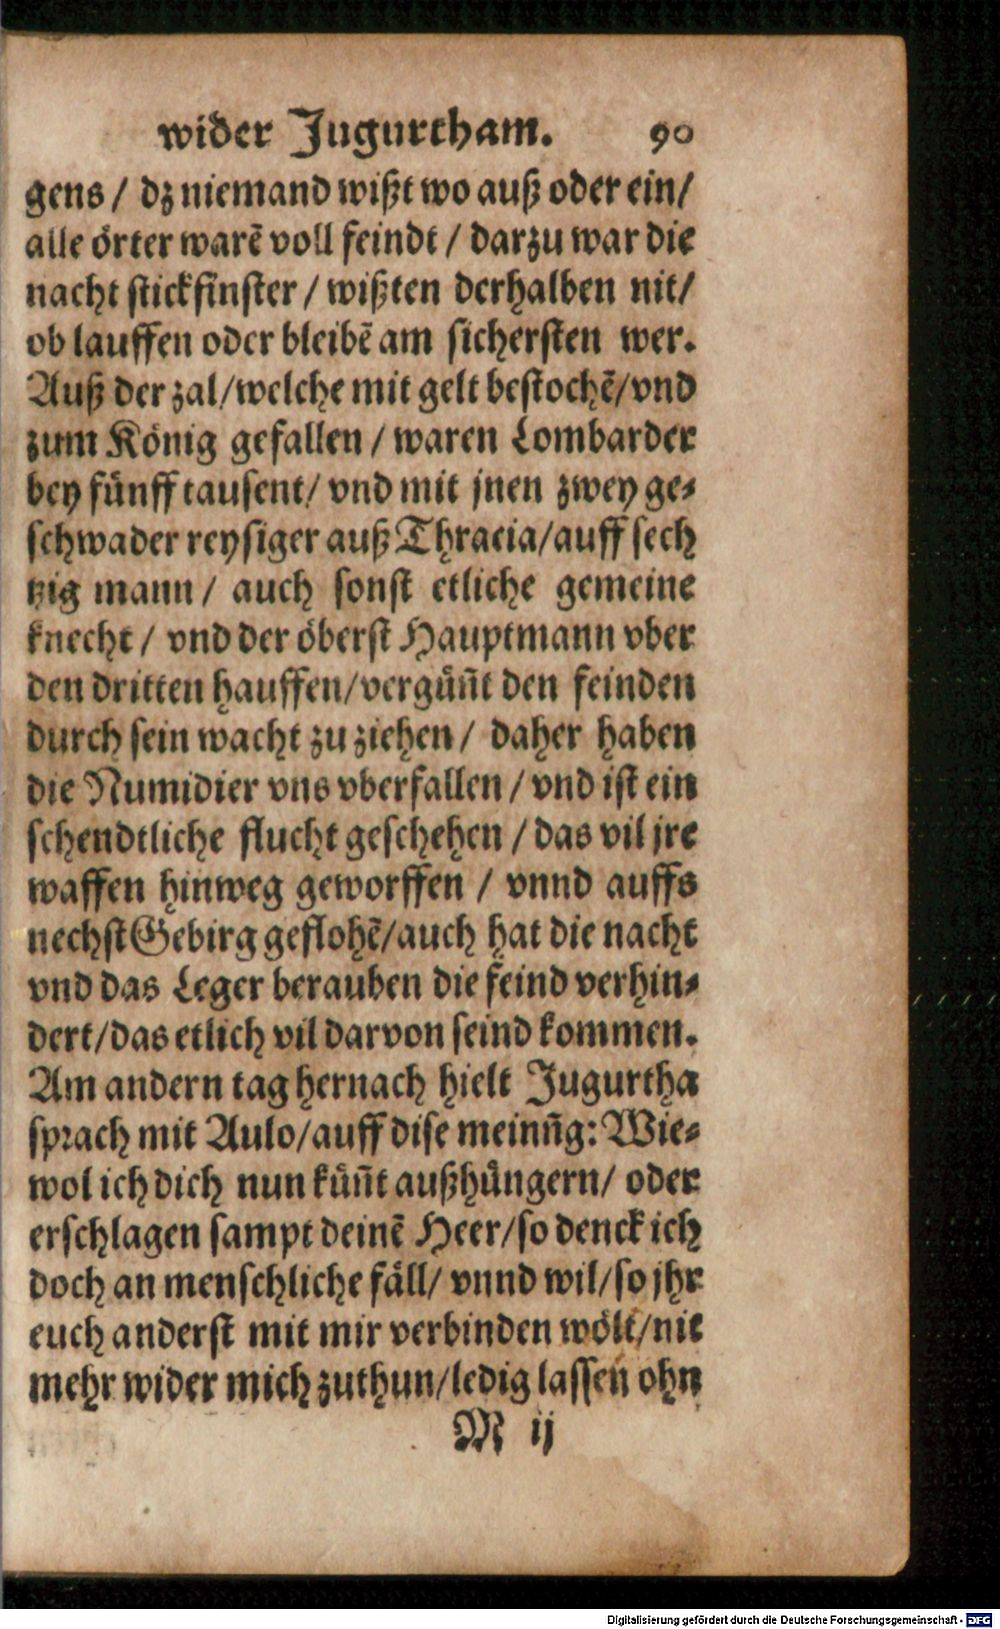 wider Jugurtham. 90
gens / dz niemand wißt wo auß oder ein/
alle örter warē voll feindt / darzu war die
nacht stickfinster / wißten derhalben nit/
ob lauffen oder bleibē am sichersten wer.
Auß der zal/welche mit gelt bestochē/vnd
zum König gefallen / waren Lombarder
bey fünff tausent/ vnd mit jnen zwey ge⸗
schwader reysiger auß Thracia/auff sech
tzig mann / auch sonst etliche gemeine
knecht / vnd der öberst Hauptmann vber
den dritten hauffen/vergün̄t den feinden
durch sein wacht zu ziehen / daher haben
die Numidier vns vberfallen / vnd ist ein
schendtliche flucht geschehen / das vil jre
waffen hinweg geworffen / vnnd auffs
nechst Gebirg geflohē/auch hat die nacht
vnd das Leger berauben die feind verhin⸗
dert/das etlich vil darvon seind kommen.
Am andern tag hernach hielt Jugurtha
sprach mit Aulo/auff dise meinūg: Wie⸗
wol ich dich nun kün̄t außhüngern/ oder
erschlagen sampt deinē Heer/so denck ich
doch an menschliche fäll/ vnnd wil/so jhr
euch anderst mit mir verbinden wölt/nit
mehr wider mich zuthun/ledig lassen ohn
M ij
Digitalisierung gefördert durch die Deutsche Forschungsgemeinschaft - DFG